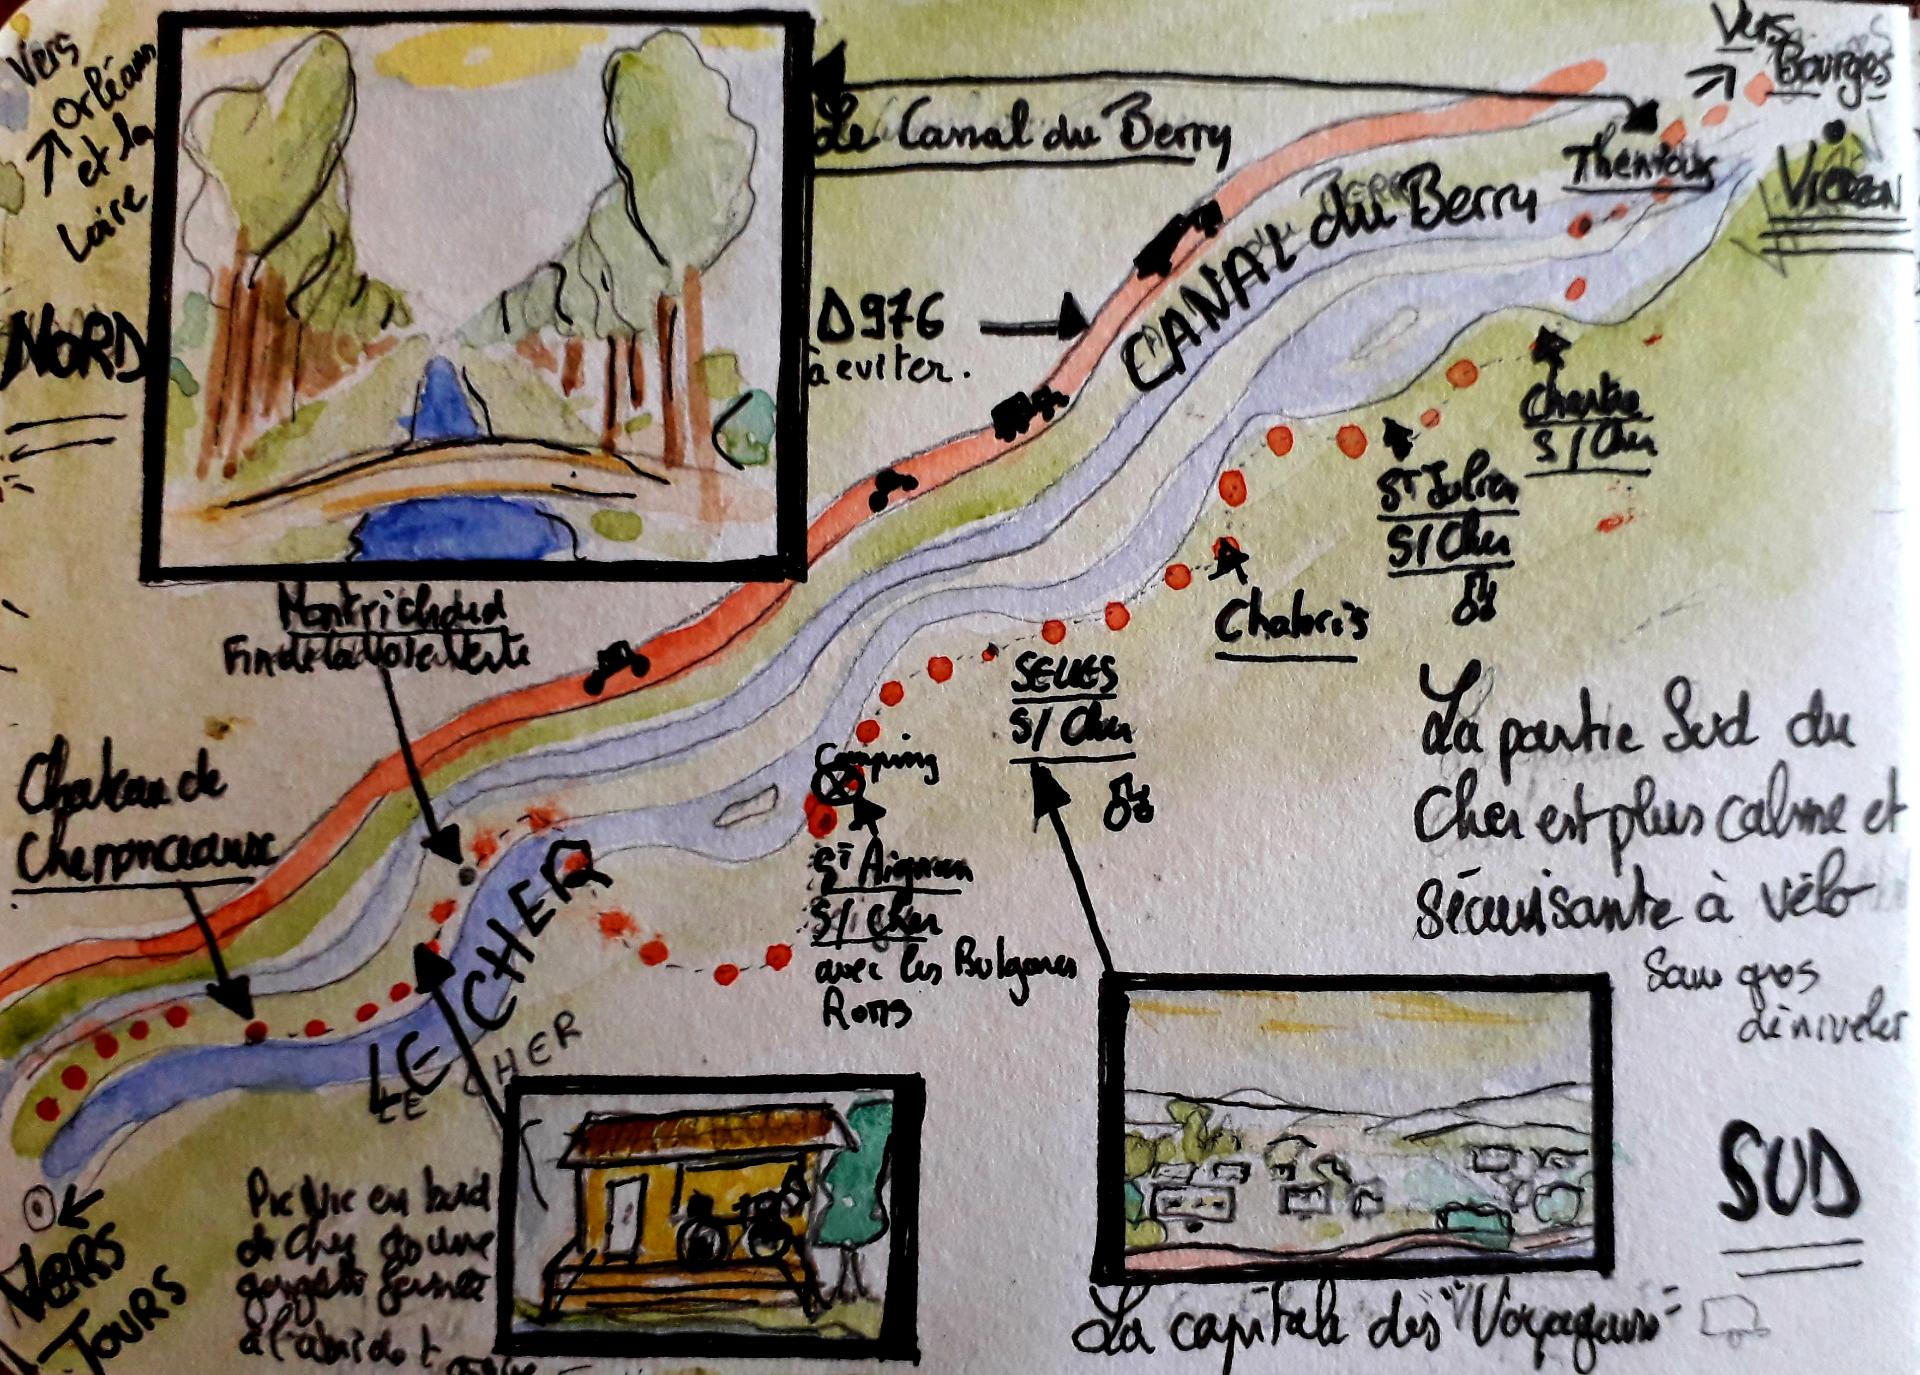 Vers
Orléans
et la
Loire
NORD
Le Canal du Berry
Vers
Bourges
Thenioux
VIERZON
CANAL du Berry
D976
à eviter.
Chartre
S/Cher
St Julien
S/Cher
Chabris
SELLES
S/Cher
Montrichard
Fin de la Voie Verte
Chateau de
Chenonceaux
Camping
St Aignan
S/Cher
avec les Bulgares
Roms
La partie Sud du
Cher est plus calme et
sécurisante à vélo
Sans gros
déniveler
LE CHER
LE CHER
SUD
Pic Nic en bord
de Cher
fermée
à l'abri de
VERS
TOURS
La capitale des "Voyageurs"